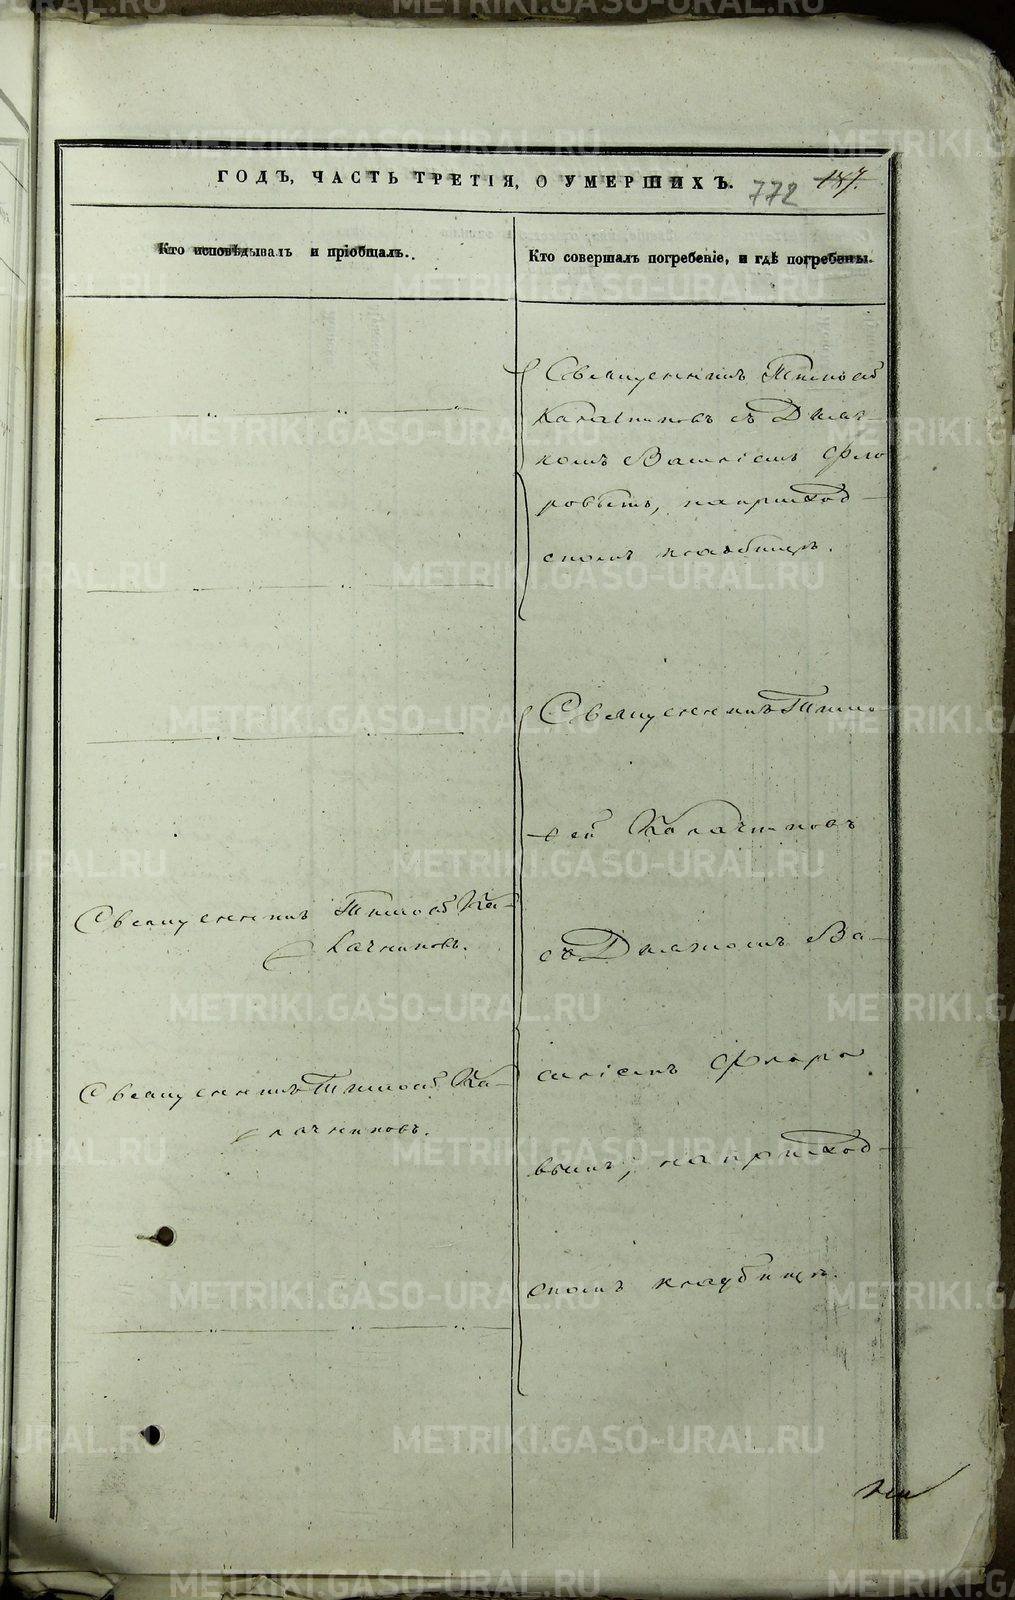 ГОДЪ, ЧАСТЬ ТРЕТІЯ, О УМЕРШИХЪ.
772 187.
Кто исповѣдывалъ и пріобщалъ.
Кто совершалъ погребеніе, и гдѣ погребены.
Священникъ Тимоѳей
Калачниковъ съ Дьяч-
комъ Василіемъ Фло
ровымъ, на приход-
скомъ кладбищѣ.
Священникъ Тимо-
ѳей Калачниковъ
съ Дьячкомъ Ва-
силіемъ Флоро
вымъ, на приход-
скомъ кладбищѣ.
Священникъ Тимоѳей Ка-
лачниковъ.
Священникъ Тимоѳей Ка-
лачниковъ.
METRIKI.GASO-URAL.RU